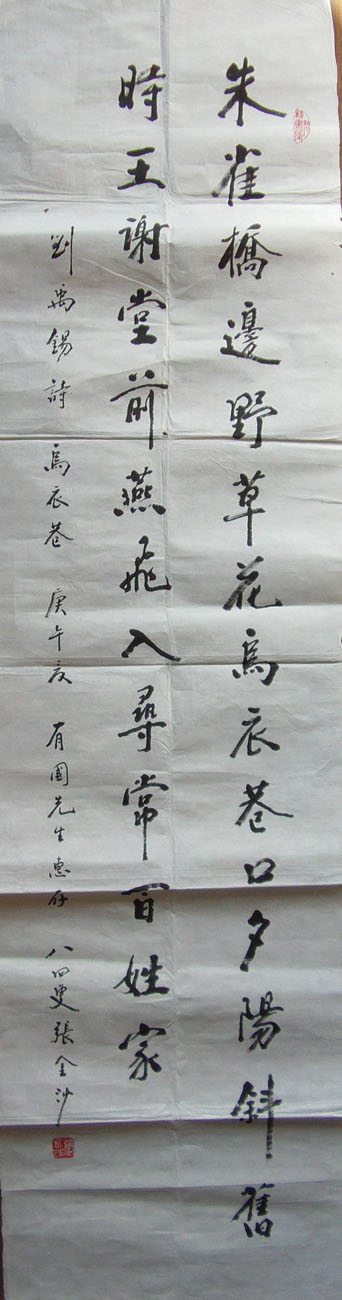 朱雀橋邊野草花烏衣巷口夕陽斜舊
時王謝堂前燕飛入尋常百姓家
劉禹錫詩 烏衣巷 庚午夜 有國先生惠存 八四叟張金沙